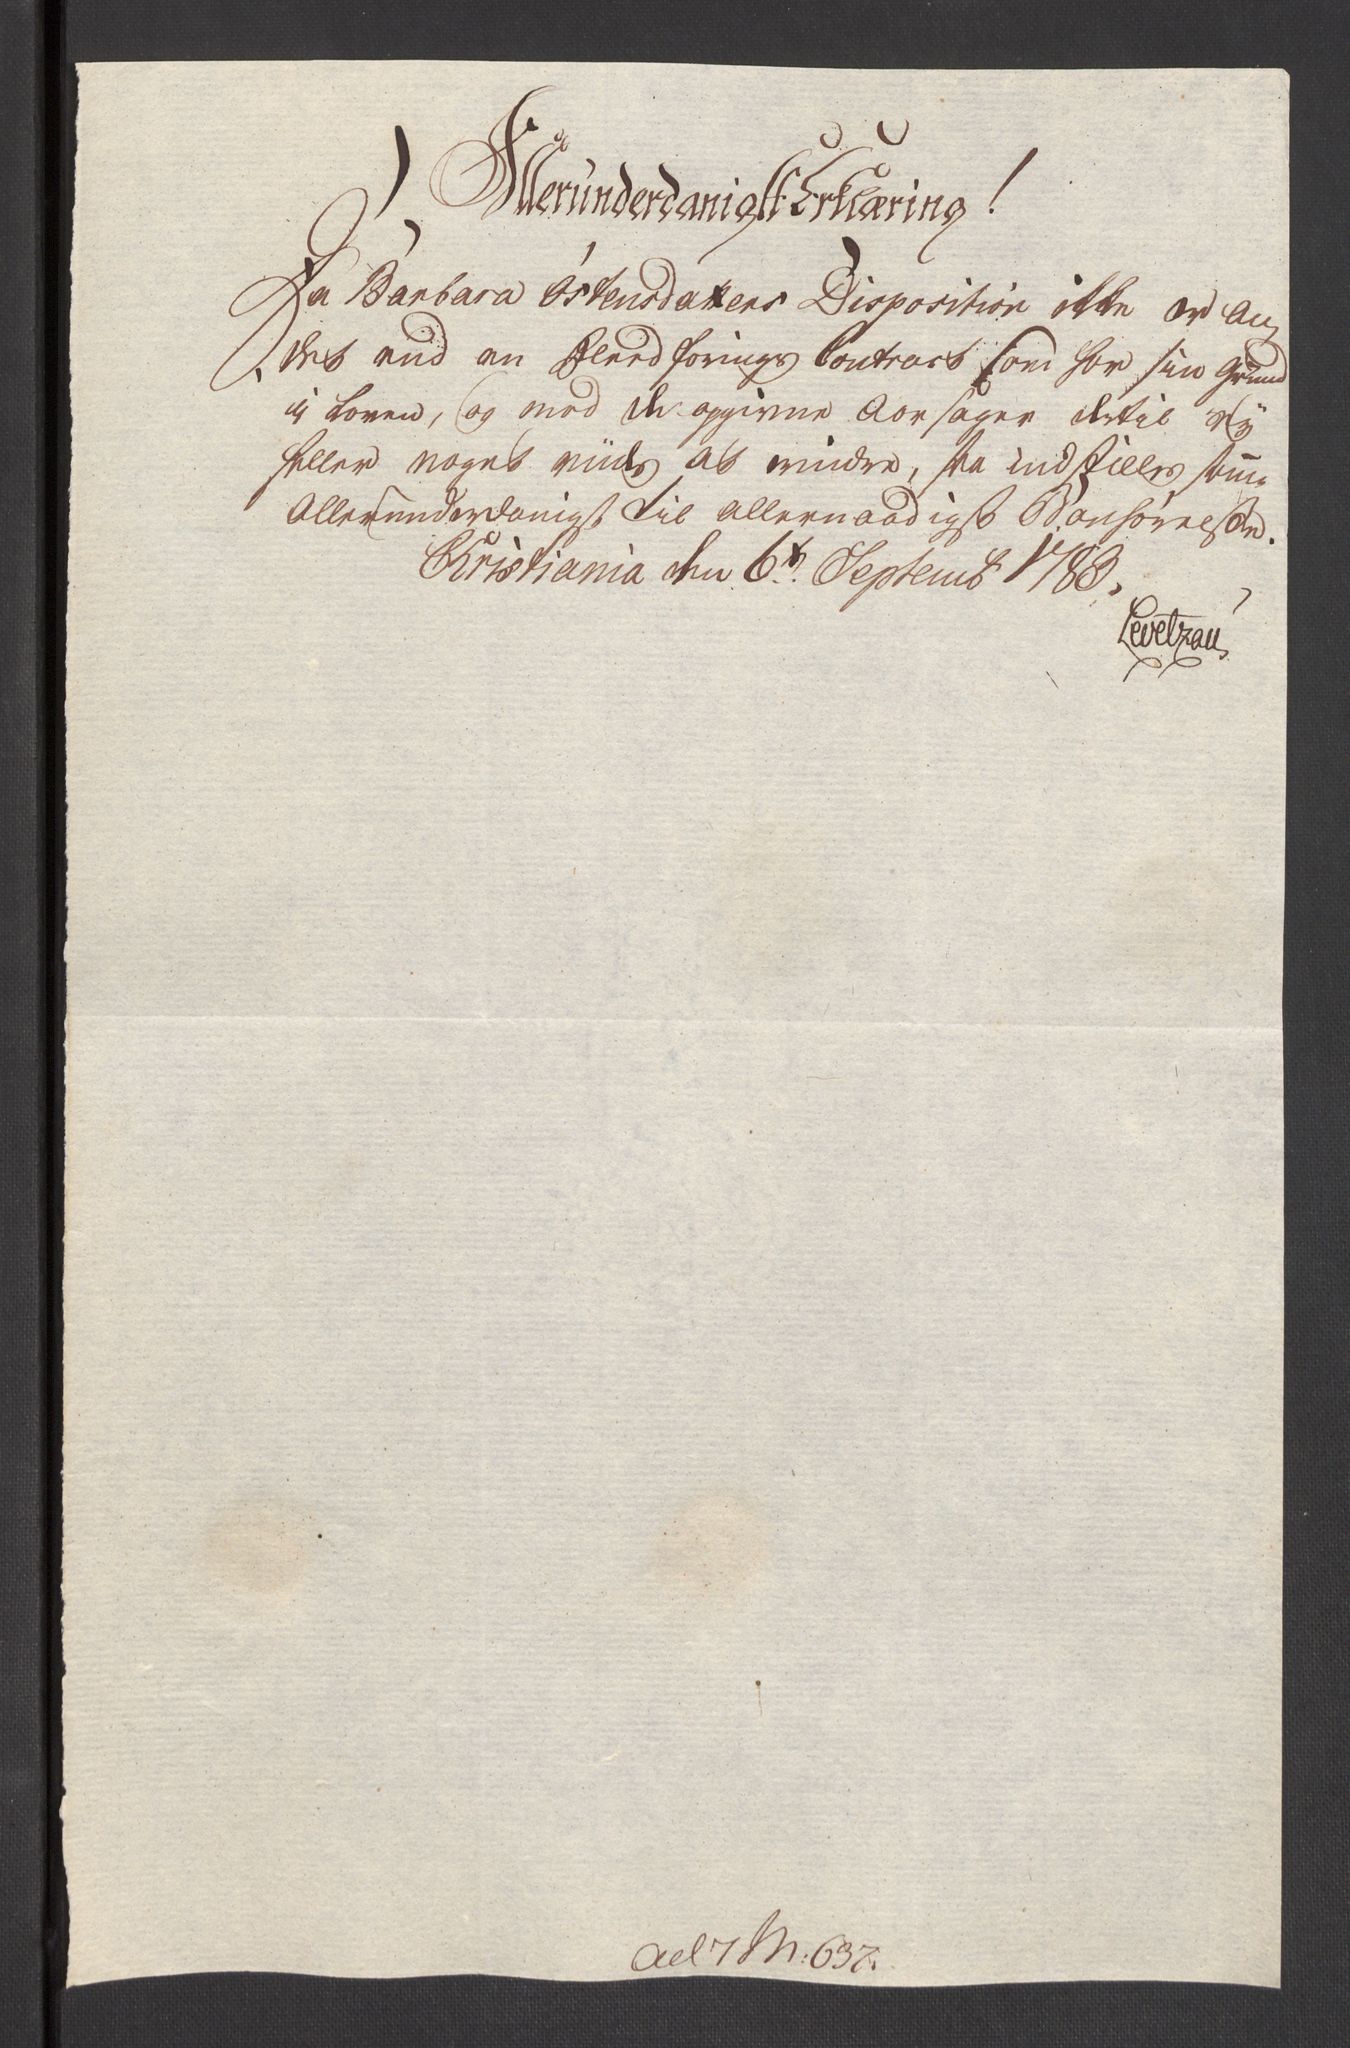 Allerunderdanigst Erklæring!
Da Barbara Østensdatters Disposition ikke er an
det end en Fledførings Contract som har sin Grund
i Loven, og mod de opgivne Aarsager dertil ey
heller noget viides at erindre, saa indstilles samme
Allerunderdanigst til allernaadigst Bønhørelse.
Christiania den 6t. Septemb 1783.
Levetzau
ad 7 M: 637.